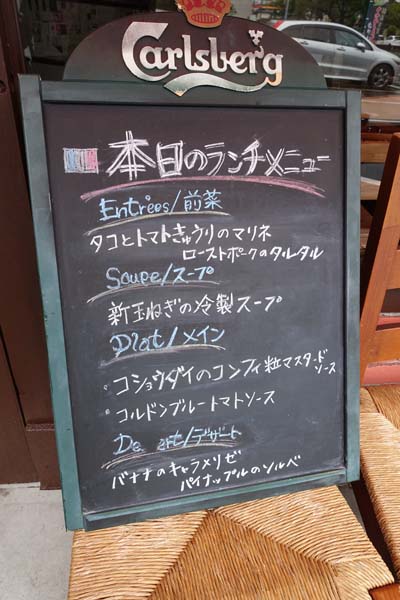 Carlsberg
本日のランチメニュー
Entrées/前菜
タコとトマトきゅうりのマリネ
ローストポークのタルタル
Soupe/スープ
新玉ねぎの冷製スープ
Plat/メイン
・コショウダイのコンフィ粒マスタード
ソース
・コルドンブルートマトソース
De  ert/デザート
バナナのキャラメリゼ
パイナップルのソルベ